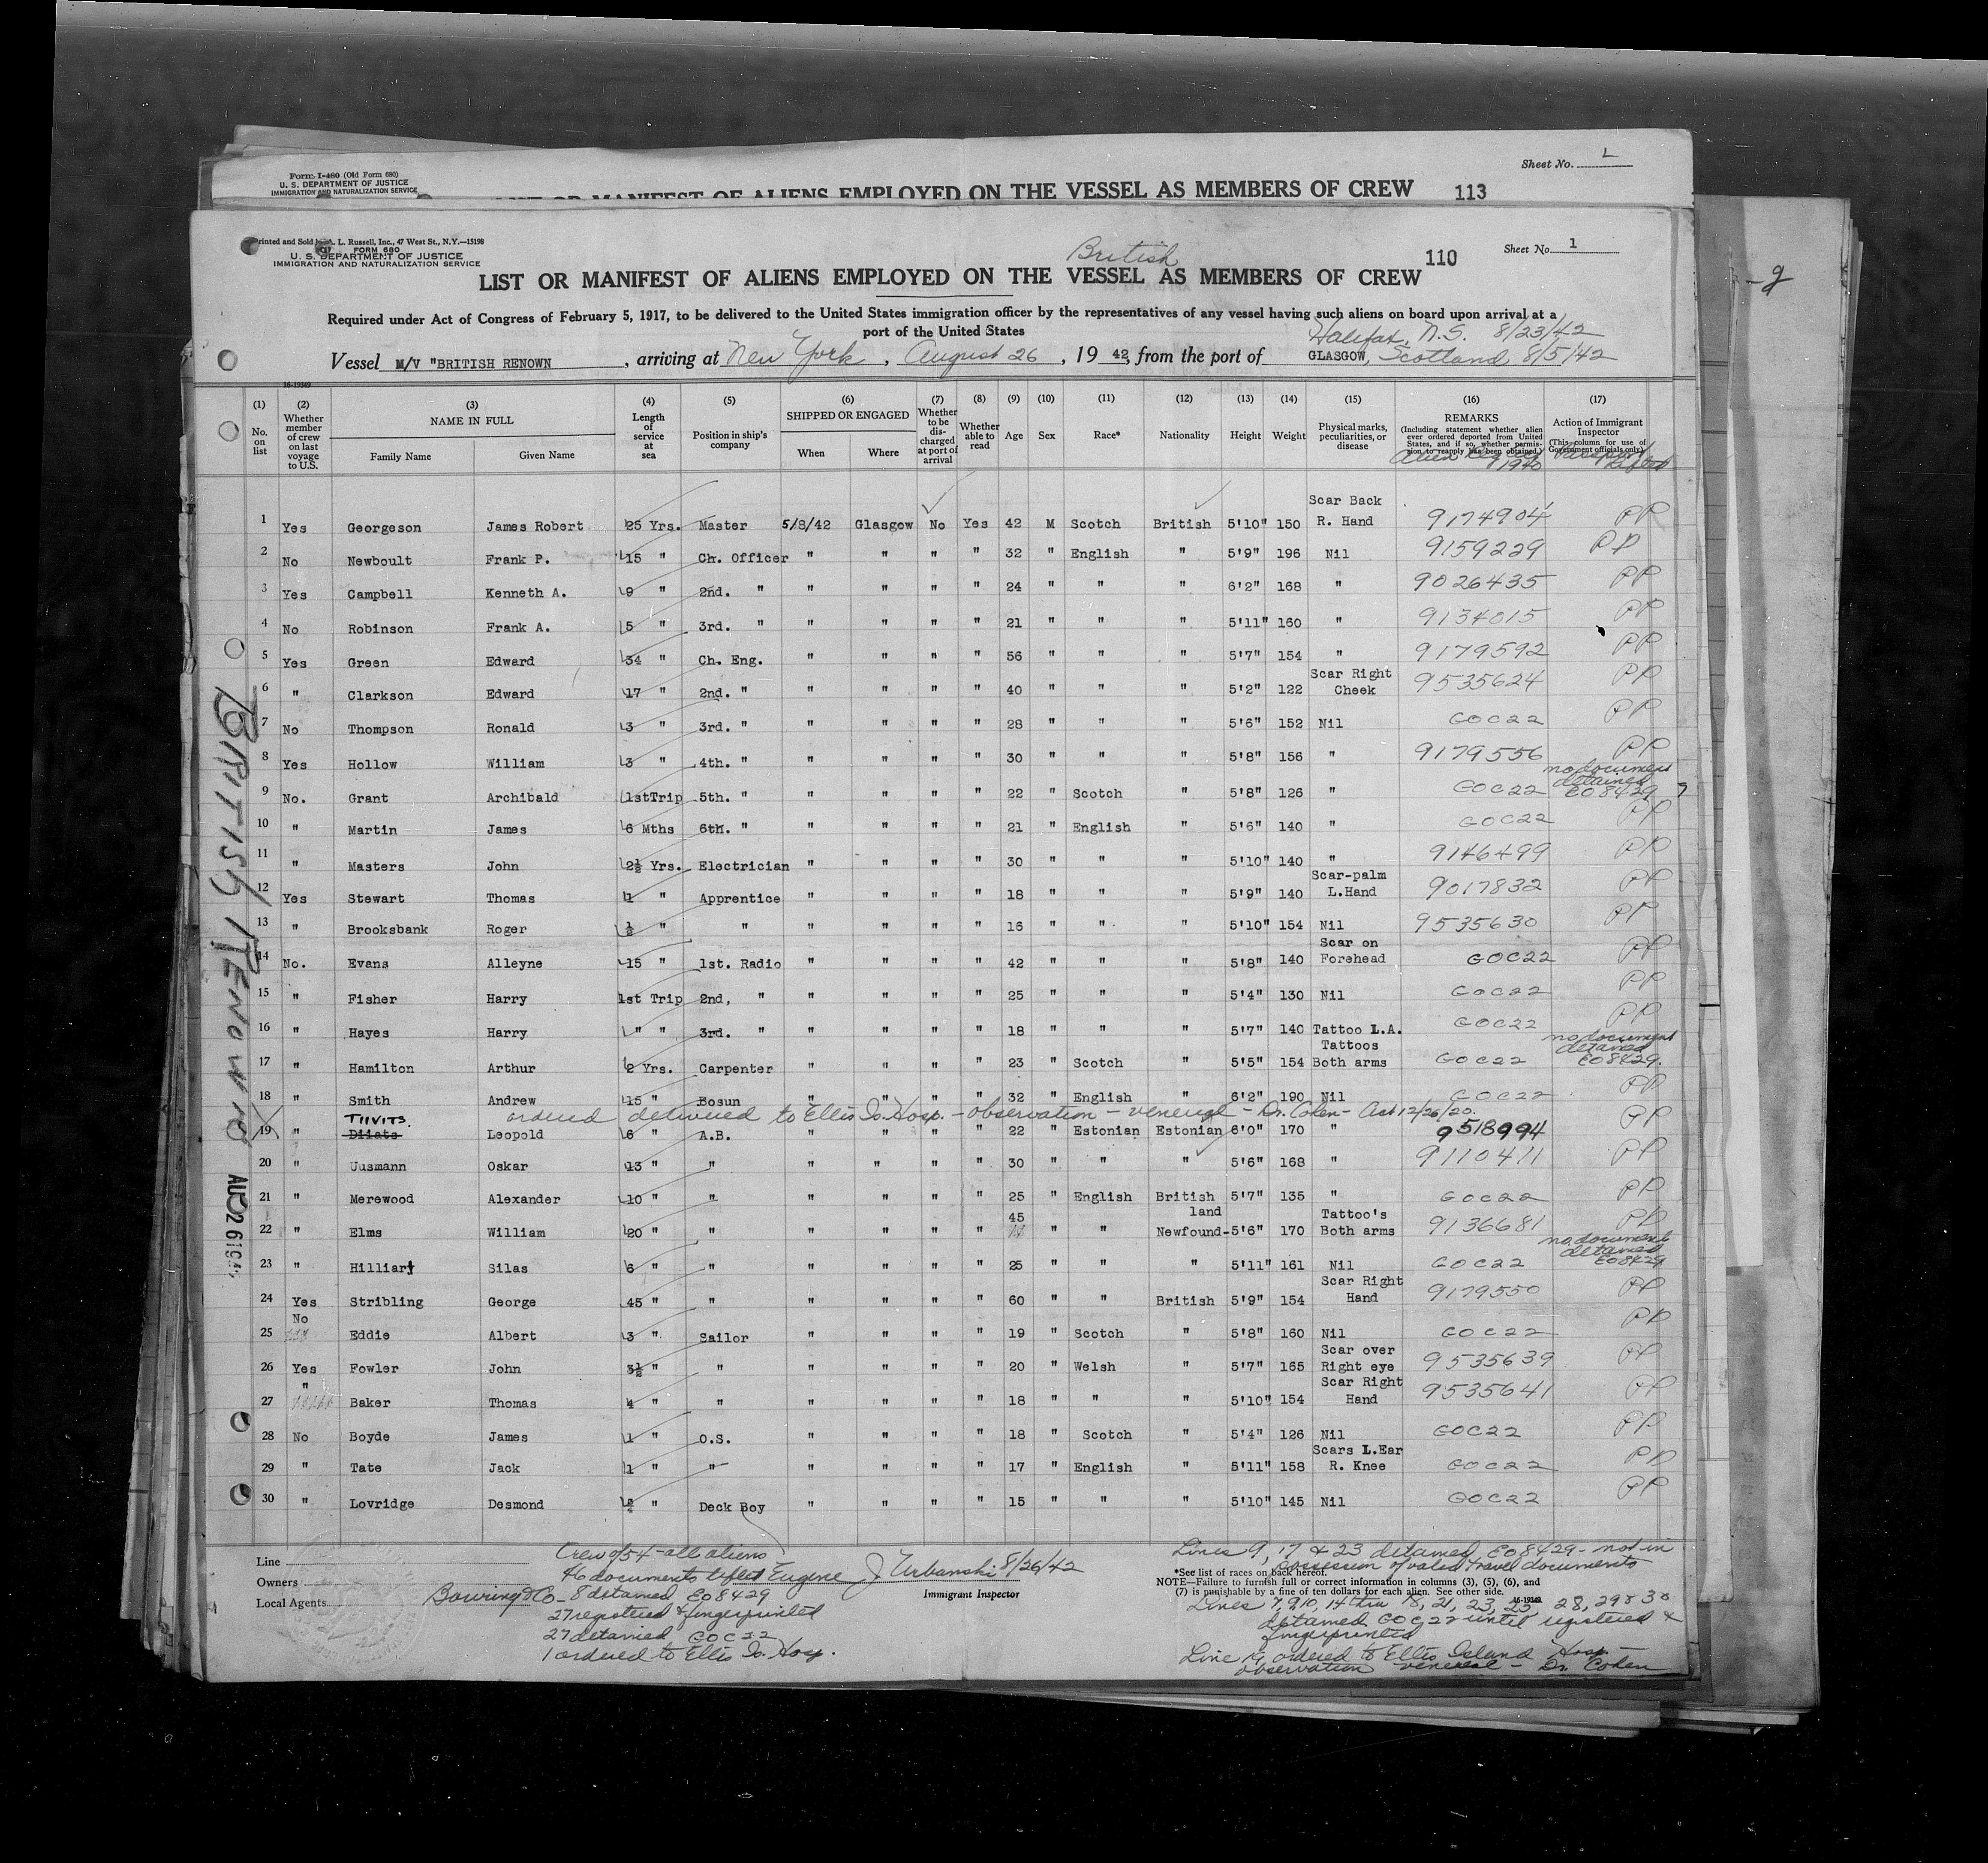 Form I-480 (Old Form 680)
U. S. DEPARTMENT OF JUSTICE
IMMIGRATION AND NATURALIZATION SERVICE
Sheet No. L
MANIFEST OF ALIENS EMPLOYED ON THE VESSEL AS MEMBERS OF CREW 113
Printed and Sold by L. Russell, Inc., 47 West St., N.Y.—15198
FORM 680
U. S. DEPARTMENT OF JUSTICE
IMMIGRATION AND NATURALIZATION SERVICE
British
110
Sheet No. 1
LIST OR MANIFEST OF ALIENS EMPLOYED ON THE VESSEL AS MEMBERS OF CREW
Required under Act of Congress of February 5, 1917, to be delivered to the United States immigration officer by the representatives of any vessel having such aliens on board upon arrival at a
port of the United States
Halifax, N.S. 8/23/42
Vessel M/V "BRITISH RENOWN, arriving at New York, August 26, 1942, from the port of GLASGOW, Scotland 8/5/42
16-19349
(1) No. on list
(2) Whether member of crew on last voyage to U.S.
(3) NAME IN FULL Family Name Given Name
(4) Length of service at sea
(5) Position in ship's company
(6) SHIPPED OR ENGAGED When Where
(7) Whether to be discharged at port of arrival
(8) Whether able to read
(9) Age
(10) Sex
(11) Race*
(12) Nationality
(13) Height
(14) Weight
(15) Physical marks, peculiarities, or disease
(16) REMARKS (Including statement whether alien ever ordered deported from United States, and if so, whether permission to reapply has been obtained.)
1940
(17) Action of Immigrant Inspector (This column for use of Government officials only)
1 Yes Georgeson James Robert 25 Yrs. Master 5/8/42 Glasgow No Yes 42 M Scotch British 5'10" 150 Scar Back R. Hand 9174904 PP
2 No Newboult Frank P. 15 " Ch. Officer " " " " 32 " English " 5'9" 196 Nil 9159229 PP
3 Yes Campbell Kenneth A. 9 " 2nd. " " " " " 24 " " " 6'2" 168 " 9026435 PP
4 No Robinson Frank A. 5 " 3rd. " " " " " 21 " " " 5'11" 160 " 9134015 PP
5 Yes Green Edward 34 " Ch. Eng. " " " " 56 " " " 5'7" 154 " 9179592 PP
6 " Clarkson Edward 17 " 2nd. " " " " " 40 " " " 5'2" 122 Scar Right Cheek 9535624 PP
7 No Thompson Ronald 3 " 3rd. " " " " " 28 " " " 5'6" 152 Nil GOC22 PP
8 Yes Hollow William 3 " 4th. " " " " " 30 " " " 5'8" 156 " 9179556 PP
9 No. Grant Archibald 1stTrip 5th. " " " " " 22 " Scotch " 5'8" 126 " GOC22 no document detained EO8429
10 " Martin James 6 Mths 6th. " " " " " 21 " English " 5'6" 140 " GOC22 PP
11 " Masters John 2½ Yrs. Electrician " " " " 30 " " " 5'10" 140 " 9146499 PP
12 Yes Stewart Thomas 1 " Apprentice " " " " 18 " " " 5'9" 140 Scar-palm L.Hand 9017832 PP
13 " Brooksbank Roger ½ " " " " " " 16 " " " 5'10" 154 Nil 9535630 PP
14 No. Evans Alleyne 15 " 1st. Radio " " " " 42 " " " 5'8" 140 Scar on Forehead GOC22 PP
15 " Fisher Harry 1st Trip 2nd, " " " " " 25 " " " 5'4" 130 Nil GOC22 PP
16 " Hayes Harry " " 3rd. " " " " " 18 " " " 5'7" 140 Tattoo L.A. GOC22 PP
17 " Hamilton Arthur 2 Yrs. Carpenter " " " " 23 " Scotch " 5'5" 154 Tattoos Both arms GOC22 no document detained EO8429.
18 " Smith Andrew 15 " Bosun " " " " 32 " English " 6'2" 190 Nil GOC22 PP
ordered delivered to Ellis Is. Hosp. - observation - venereal - Dr. Cohen - Act 12/26/20.
TIIVITS.
19 " Diiats Leopold 6 " A.B. " " " " 22 " Estonian Estonian 6'0" 170 " 9518994 PP
20 " Uusmann Oskar 13 " " " " " " 30 " " " 5'6" 168 " 9110411 PP
21 " Merewood Alexander 10 " " " " " " 25 " English British 5'7" 135 " GOC22 PP
22 " Elms William 20 " " " " " " 45 " " Newfound-land 5'6" 170 Tattoo's Both arms 9136681 PP
23 " Hilliart Silas 6 " " " " " " 25 " " " 5'11" 161 Nil GOC22 no document detained EO8429
24 Yes Stribling George 45 " " " " " " 60 " " British 5'9" 154 Scar Right Hand 9179550 PP
25 No Eddie Albert 3 " Sailor " " " " 19 " Scotch " 5'8" 160 Nil GOC22 PP
26 Yes Fowler John 3½ " " " " " " 20 " Welsh " 5'7" 165 Scar over Right eye 9535639 PP
27 " Baker Thomas 4 " " " " " " 18 " " " 5'10" 154 Scar Right Hand 9535641 PP
28 No Boyde James 1 " O.S. " " " " 18 " Scotch " 5'4" 126 Nil GOC22 PP
29 " Tate Jack 1 " " " " " " 17 " English " 5'11" 158 Scars L.Ear R. Knee GOC22 PP
30 " Lovridge Desmond " Deck Boy " " " " 15 " " " 5'10" 145 Nil GOC22 PP
BRITISH RENOWN
AUG 26 194
Line
Owners
Local Agents Bowring & Co
Crew of 54 - all aliens
46 documents lifted
8 detained EO8429
27 registered & fingerprinted
27 detained GOC22
1 ordered to Ellis Is. Hosp.
Eugene J Urbanski 8/26/42
Immigrant Inspector
Lines 9, 17 & 23 detained EO8429 - not in
possession of valid travel documents
*See list of races on back hereof.
NOTE—Failure to furnish full or correct information in columns (3), (5), (6), and
(7) is punishable by a fine of ten dollars for each alien. See other side.
16-19349
Lines 7, 9, 10, 14 thru 18, 21, 23, 25, 28, 29 & 30
detained GOC 22 until registered &
fingerprinted
Line 19 ordered to Ellis Island Hosp —
observation venereal - Dr. Cohen